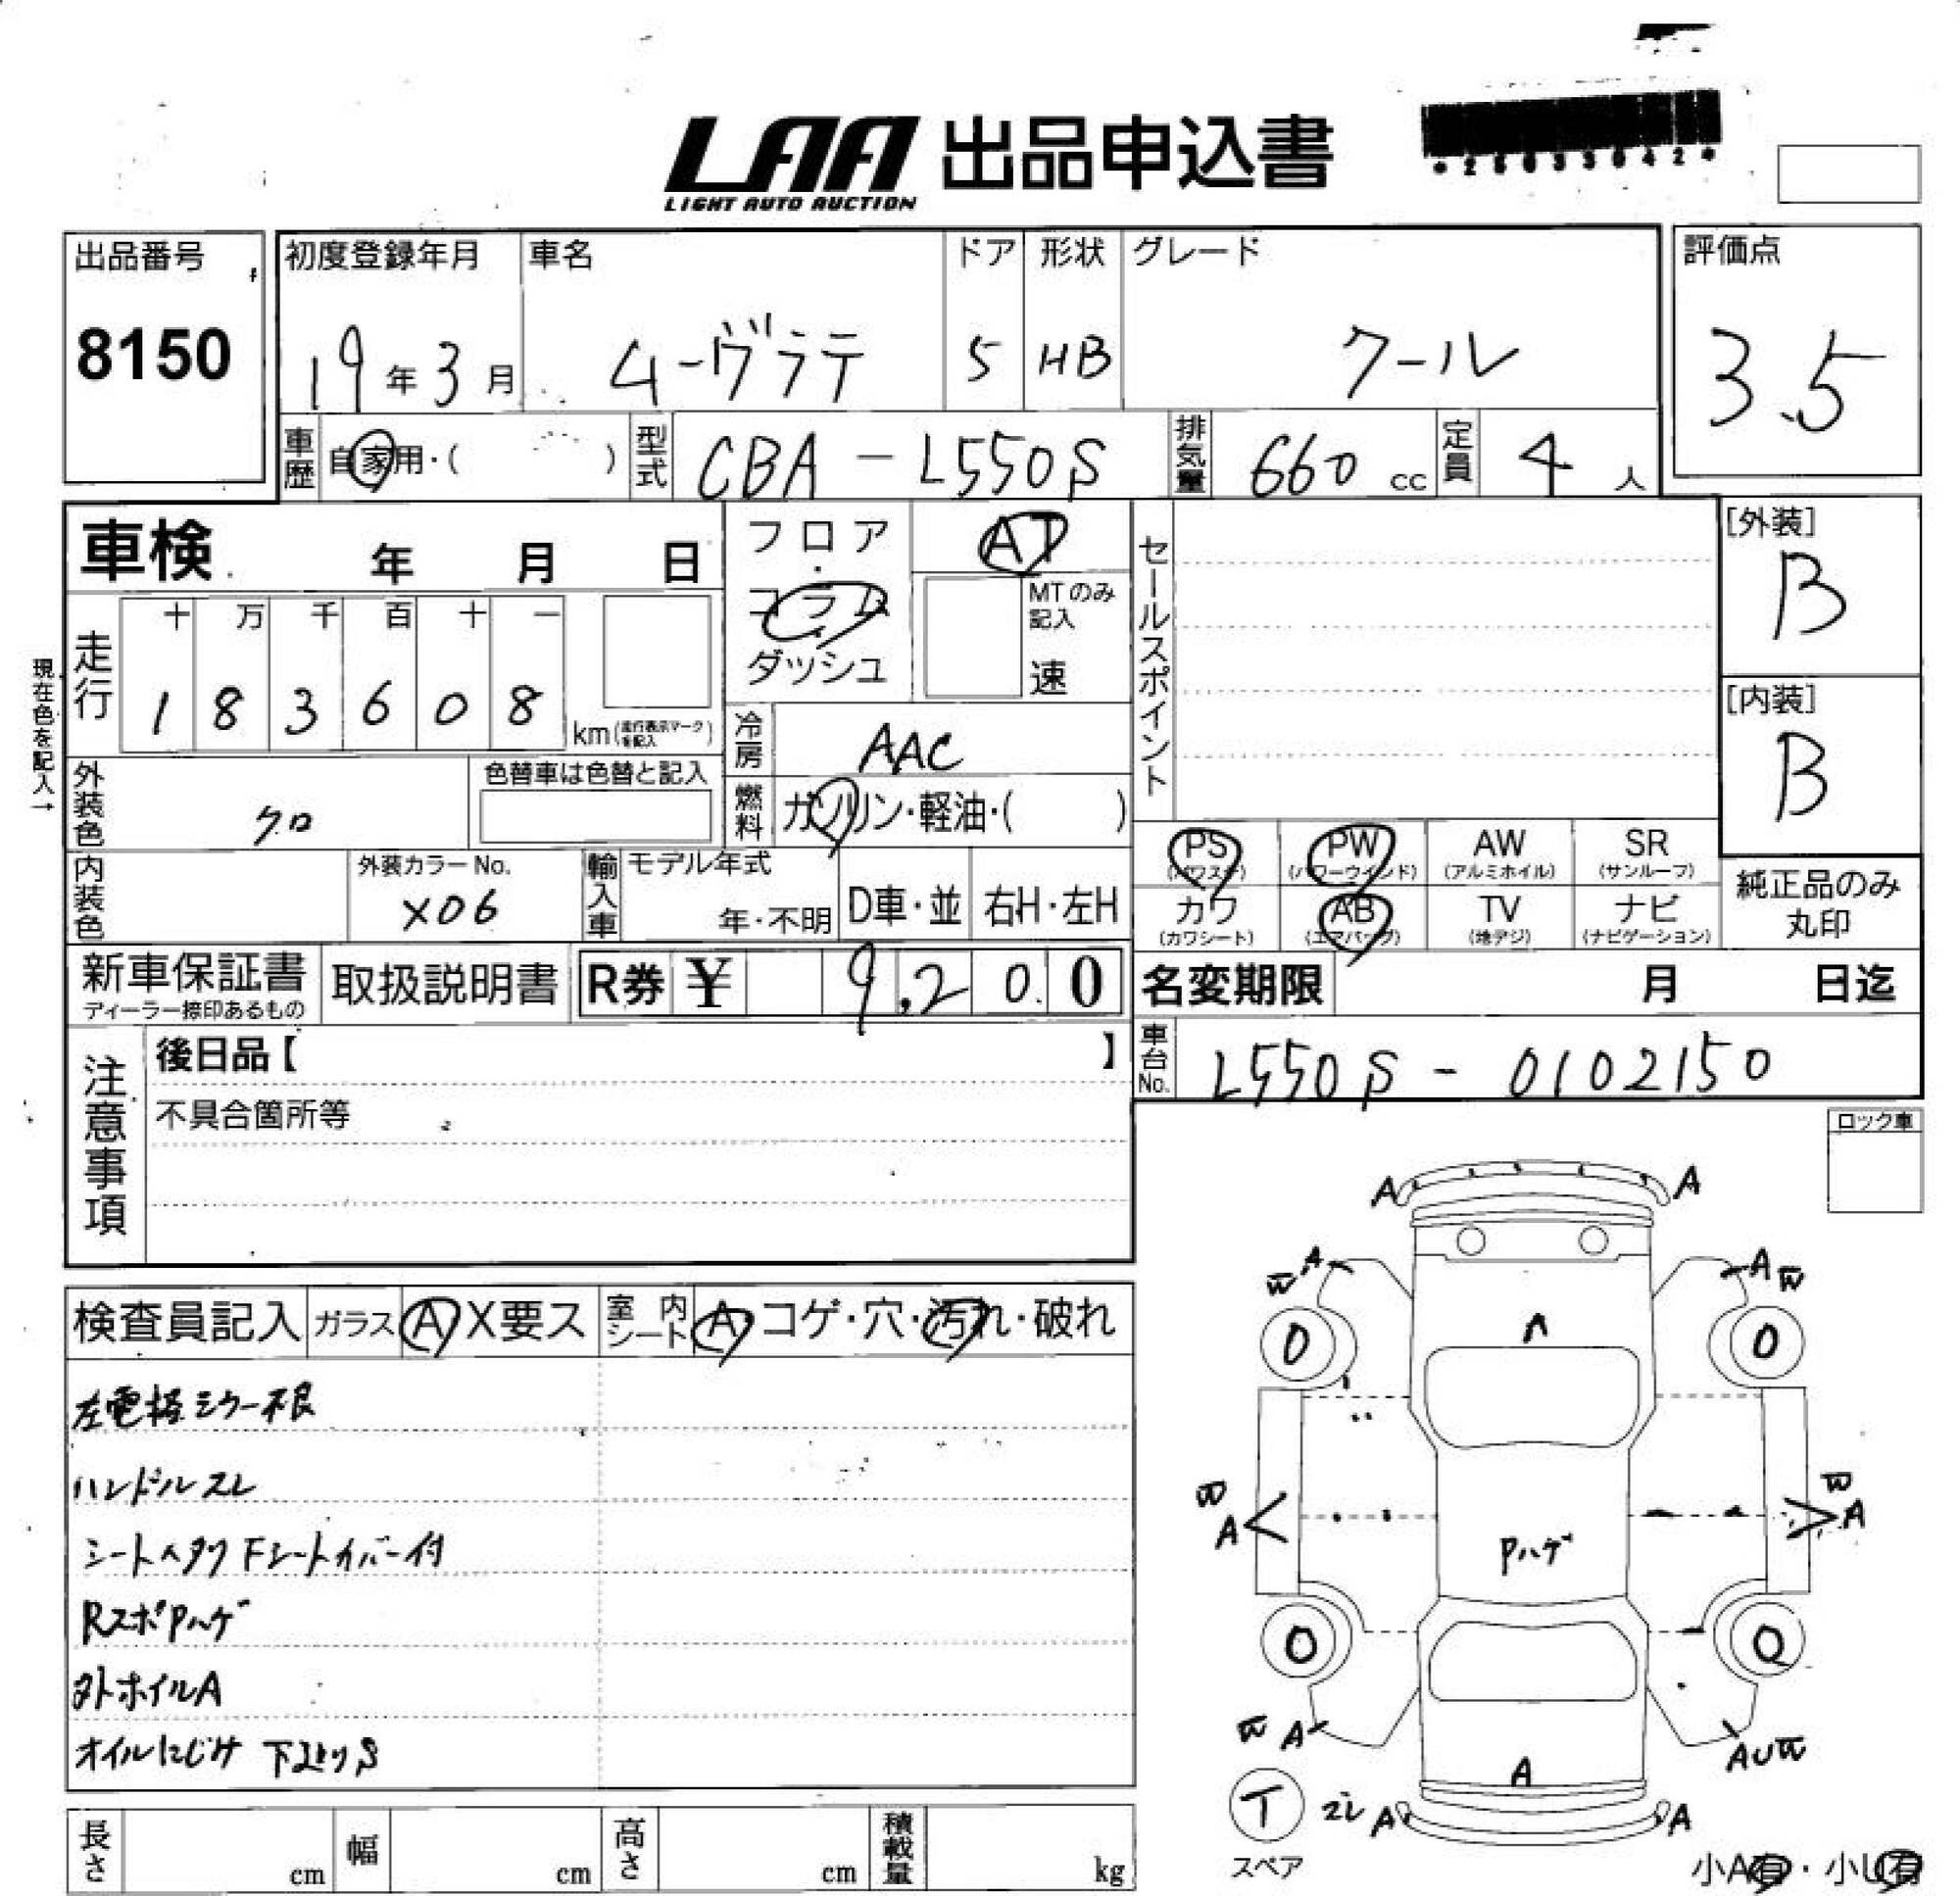 LAA 出品申込書
LIGHT AUTO AUCTION
出品番号
8150
初度登録年月
19年3月
車名
ムーヴラテ
ドア
5
形状
HB
グレード
クール
評価点
3.5
車歴
自家用・( )
型式
CBA-L550S
排気量
660 cc
定員
4 人
車検 年 月 日
現在色を記入→
走行
十 万 千 百 十 一
1 8 3 6 0 8
km
フロア
コラム
ダッシュ
AT
MTのみ記入
速
セールスポイント
[外装]
B
[内装]
B
冷房
AAC
外装色
クロ
色替車は色替と記入
燃料
ガソリン・軽油・( )
内装色
外装カラーNo.
X06
輸入車
モデル年式
年・不明
D車・並
右H・左H
PS (パワステ)
PW (パワーウインド)
AW (アルミホイル)
SR (サンルーフ)
カワ (カワシート)
AB (エアバック)
TV (地デジ)
ナビ (ナビゲーション)
純正品のみ
丸印
新車保証書
ディーラー捺印あるもの
取扱説明書
R券 ¥ 9,200
名変期限 月 日迄
車台No.
L550S-0102150
注意事項
後日品【 】
不具合箇所等
ロック車
検査員記入
ガラス A X要ス
室内シート A コゲ・穴・汚れ・破れ
左電格ミラー不良
ハンドルスレ
シートヘタリ Fシートカバー付
RスポPハゲ
外ホイルA
オイルにじみ 下廻りS
A A
W A A W
A
0 0
W A
W A
Pハゲ
0 0
W A AUW
A
T ズレ A A
スペア
小A有・小U有
長さ cm
幅 cm
高さ cm
積載量 kg